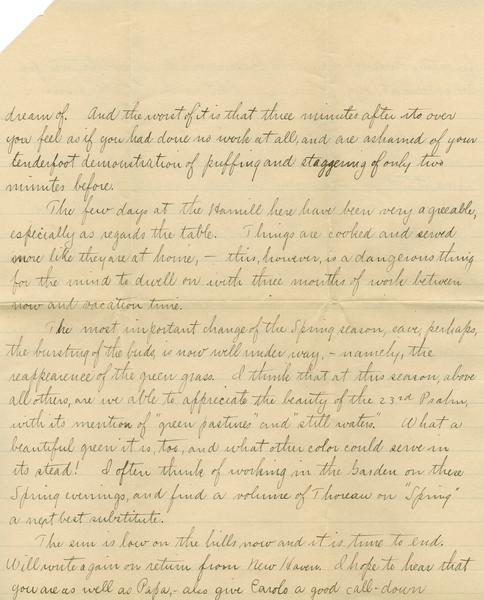 dream of. And the worst of it is that three minutes after its over
you feel as if you had done no work at all, and are ashamed of your
tenderfoot demonstration of puffing and staggering of only two
minutes before.
The few days at the Hamill here have been very agreeable,
especially as regards the table. Things are cooked and served
more like they are at home, — this, however, is a dangerous thing
for the mind to dwell on with three months of work between
now and vacation time.
The most important change of the Spring season, save, perhaps,
the bursting of the buds, is now well under way, - namely, the
reappearence of the green grass. I think that at this season, above
all others, are we able to appreciate the beauty of the 23rd Psalm,
with its mention of "green pastures" and "still waters". What a
beautiful green it is, too, and what other color could serve in
its stead! I often think of working in the Garden on these
Spring evenings, and find a volume of Thoreau on "Spring"
a next best substitute.
The sun is low on the hills now and it is time to end.
Will write again on return from New Haven. I hope to hear that
you are as well as Papa, - also give Carolo a good call-down